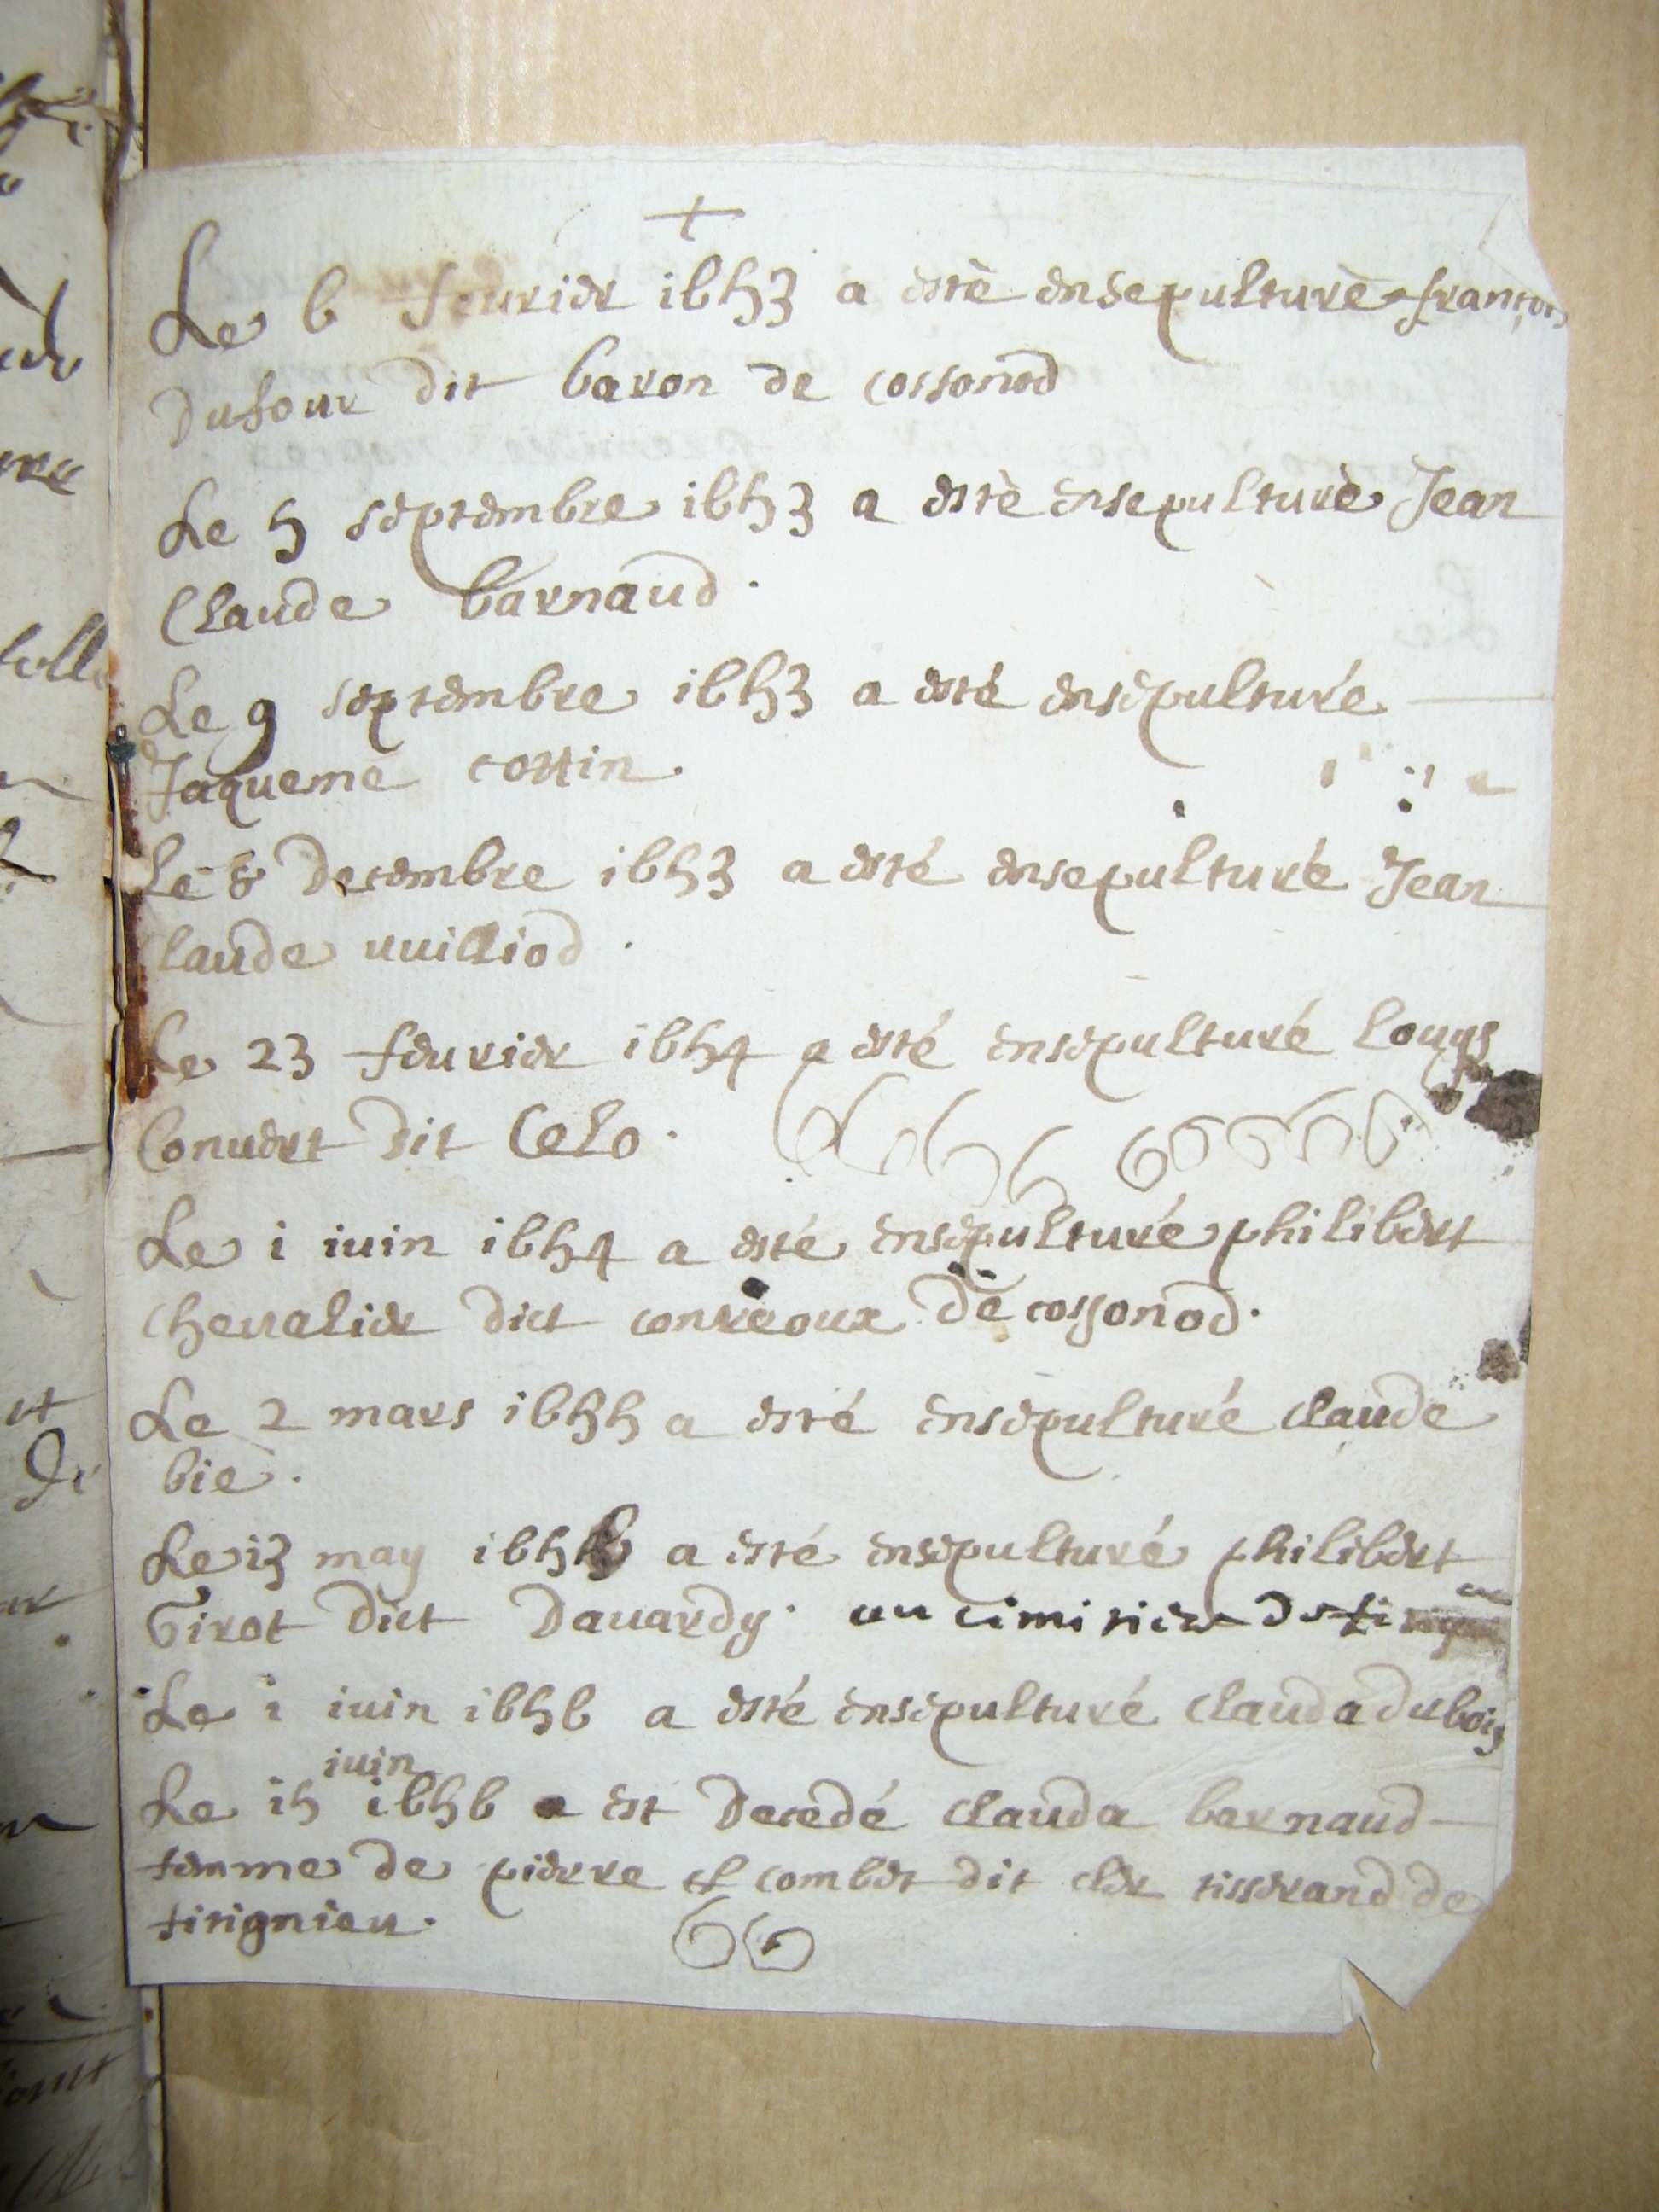 +
Le 6 feurier 1653 a esté ensepulturé françois
Dufour dit baron de cossonod
Le 5 septembre 1653 a esté ensepulturé Jean
Claude barnaud.
Le 9 septembre 1653 a esté ensepulturé
Jaqueme cottin.
Le 8 Decembre 1653 a esté ensepulturé Jean
Claude uuilliod.
Le 23 feurier 1654 a esté ensepulturé Louys
Conuert dit Celo.
Le 1 iuin 1654 a esté ensepulturé philibert
Cheualier dict conreoux de cossonod.
Le 2 mars 1655 a esté ensepulturé claude
bie.
Le 13 may 1656 a esté ensepulturé philibert
Girot dict Dauardy. au cimitiere de
Le 1 iuin 1656 a esté ensepulturé clauda dubois
iuin
Le 15 1656 est decedé clauda bernaud
femme de pierre combet dit cler tisserand de
titignieu.